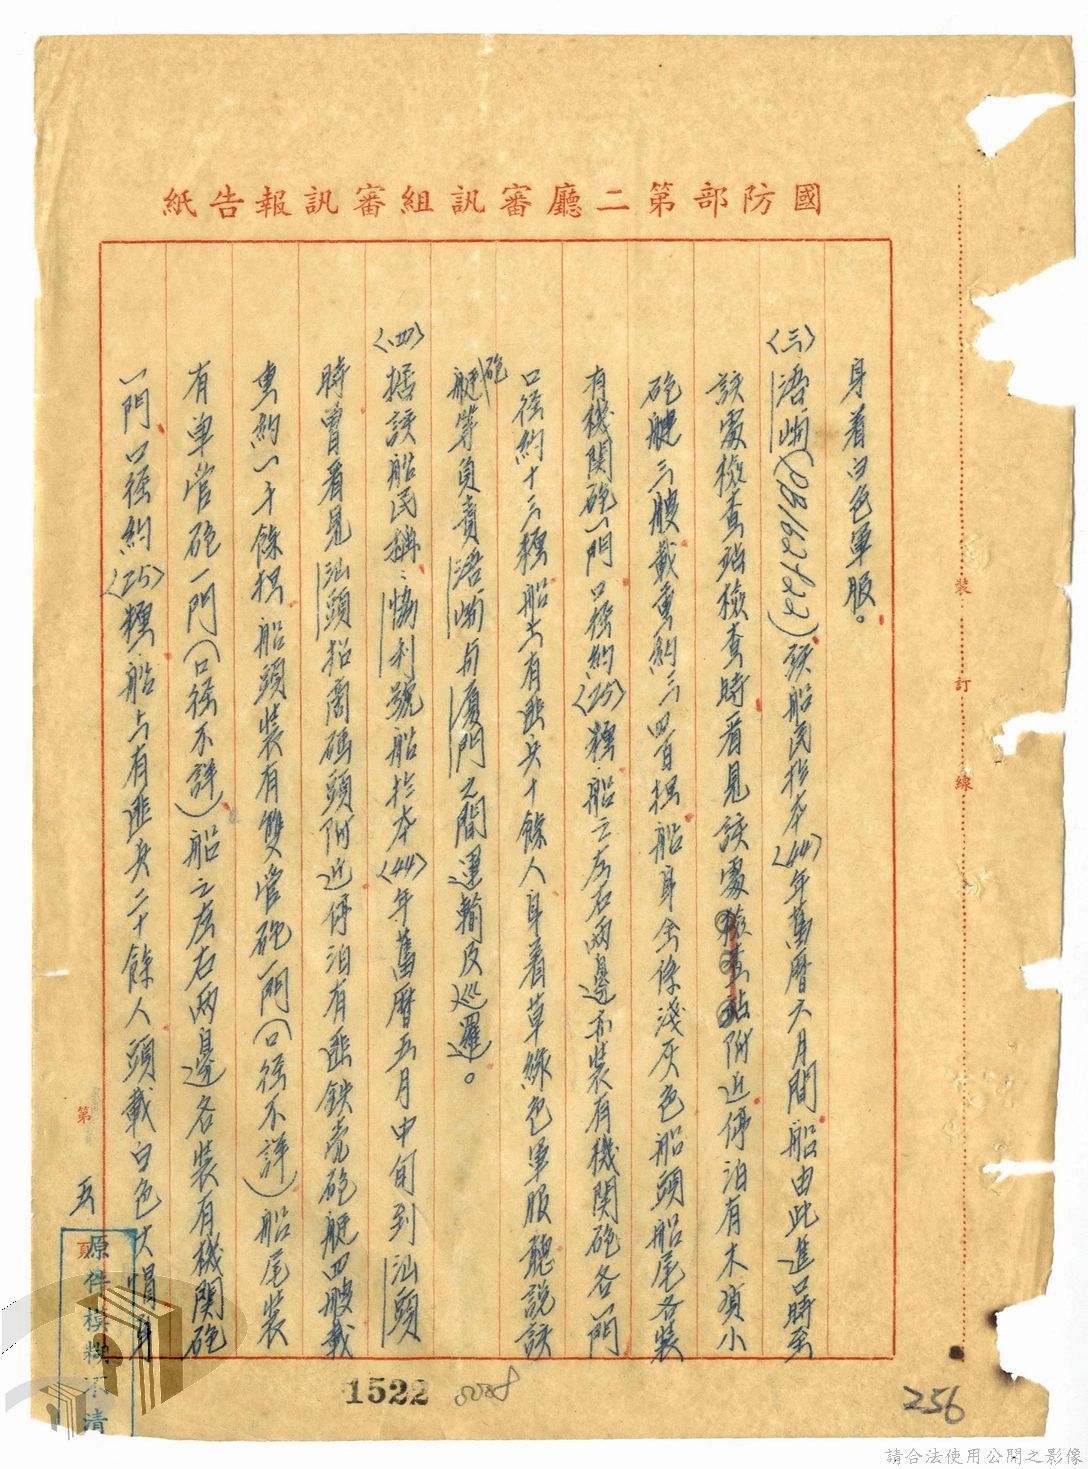 國防部第二廳審訊組審訊報告紙
身着白色軍服。
〈三〉浯嶼(QB162722)該船民於本〈44〉年舊曆六月間船由此進口時至
該處檢查站檢查時看見該處附近停泊有木壳小
砲艇三艘載重約三四百担船身全係淺灰色船頭船尾各裝
有機関砲一門口徑約〈25〉糎船之左右兩邊亦裝有機関砲各一門
口徑約十三糎船上有匪兵十餘人身着草綠色軍服聽說該
砲艇等負責浯嶼与厦門之間運輸及巡邏。
〈四〉据該船民稱:協利號船於本〈44〉年舊曆五月中旬到汕頭
時曾看見汕頭招商碼頭附近停泊有匪鉄壳砲艇四艘載
重約一千餘担船頭裝有雙管砲一門(口徑不詳)船尾裝
有单管砲一門(口徑不詳)船之左右兩邊各裝有機関砲
一門口徑約〈25〉糎船上有匪兵二十餘人頭載白色大帽身
裝訂線
第五頁
原件模糊不清
1522
256
請合法使用公開之影像